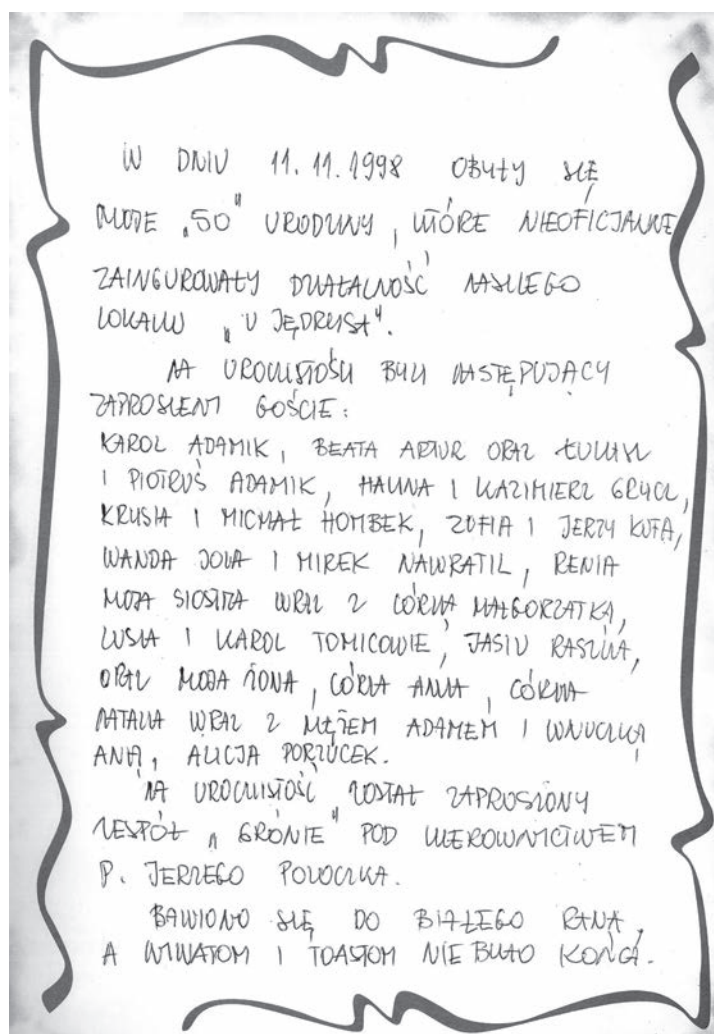 W DNIU 11.11.1998 ODBYŁY SIĘ
MOJE „50" URODZINY, KTÓRE NIEOFICJALNIE
ZAINGUROWAŁY DZIAŁALNOŚĆ NASZEGO
LOKALU „U JĘDRUSA".
NA UROCZYSTOŚCI BYLI NASTĘPUJĄCY
ZAPROSZENI GOŚCIE:
KAROL ADAMIK, BEATA ARTUR ORAZ ŁUKASZ
I PIOTRUŚ ADAMIK, HALINA I KAZIMIERZ GRYCZ,
KRUSIA I MICHAŁ HOMBEK, ZOFIA I JERZY KUFA,
WANDA JOLA I MIREK NAWRATIL, RENIA
MOJA SIOSTRA WRAZ Z CÓRKĄ MAŁGORZATKĄ,
LUSIA I KAROL TOMICOWIE, JASIU RASZKA,
ORAZ MOJA ŻONA, CÓRKA ANNA, CÓRKA
NATALIA WRAZ Z MĘŻEM ADAMEM I WNUCZKĄ
ANIĄ, ALICJA PORZUCEK.
NA UROCZYSTOŚĆ ZOSTAŁ ZAPROSZONY
ZESPÓŁ „GRÓNIE" POD KIEROWNICTWEM
P. JERZEGO POLOCZKA.
BAWIONO SIĘ DO BIAŁEGO RANA,
A WIWATOM I TOASTOM NIE BYŁO KOŃCA.